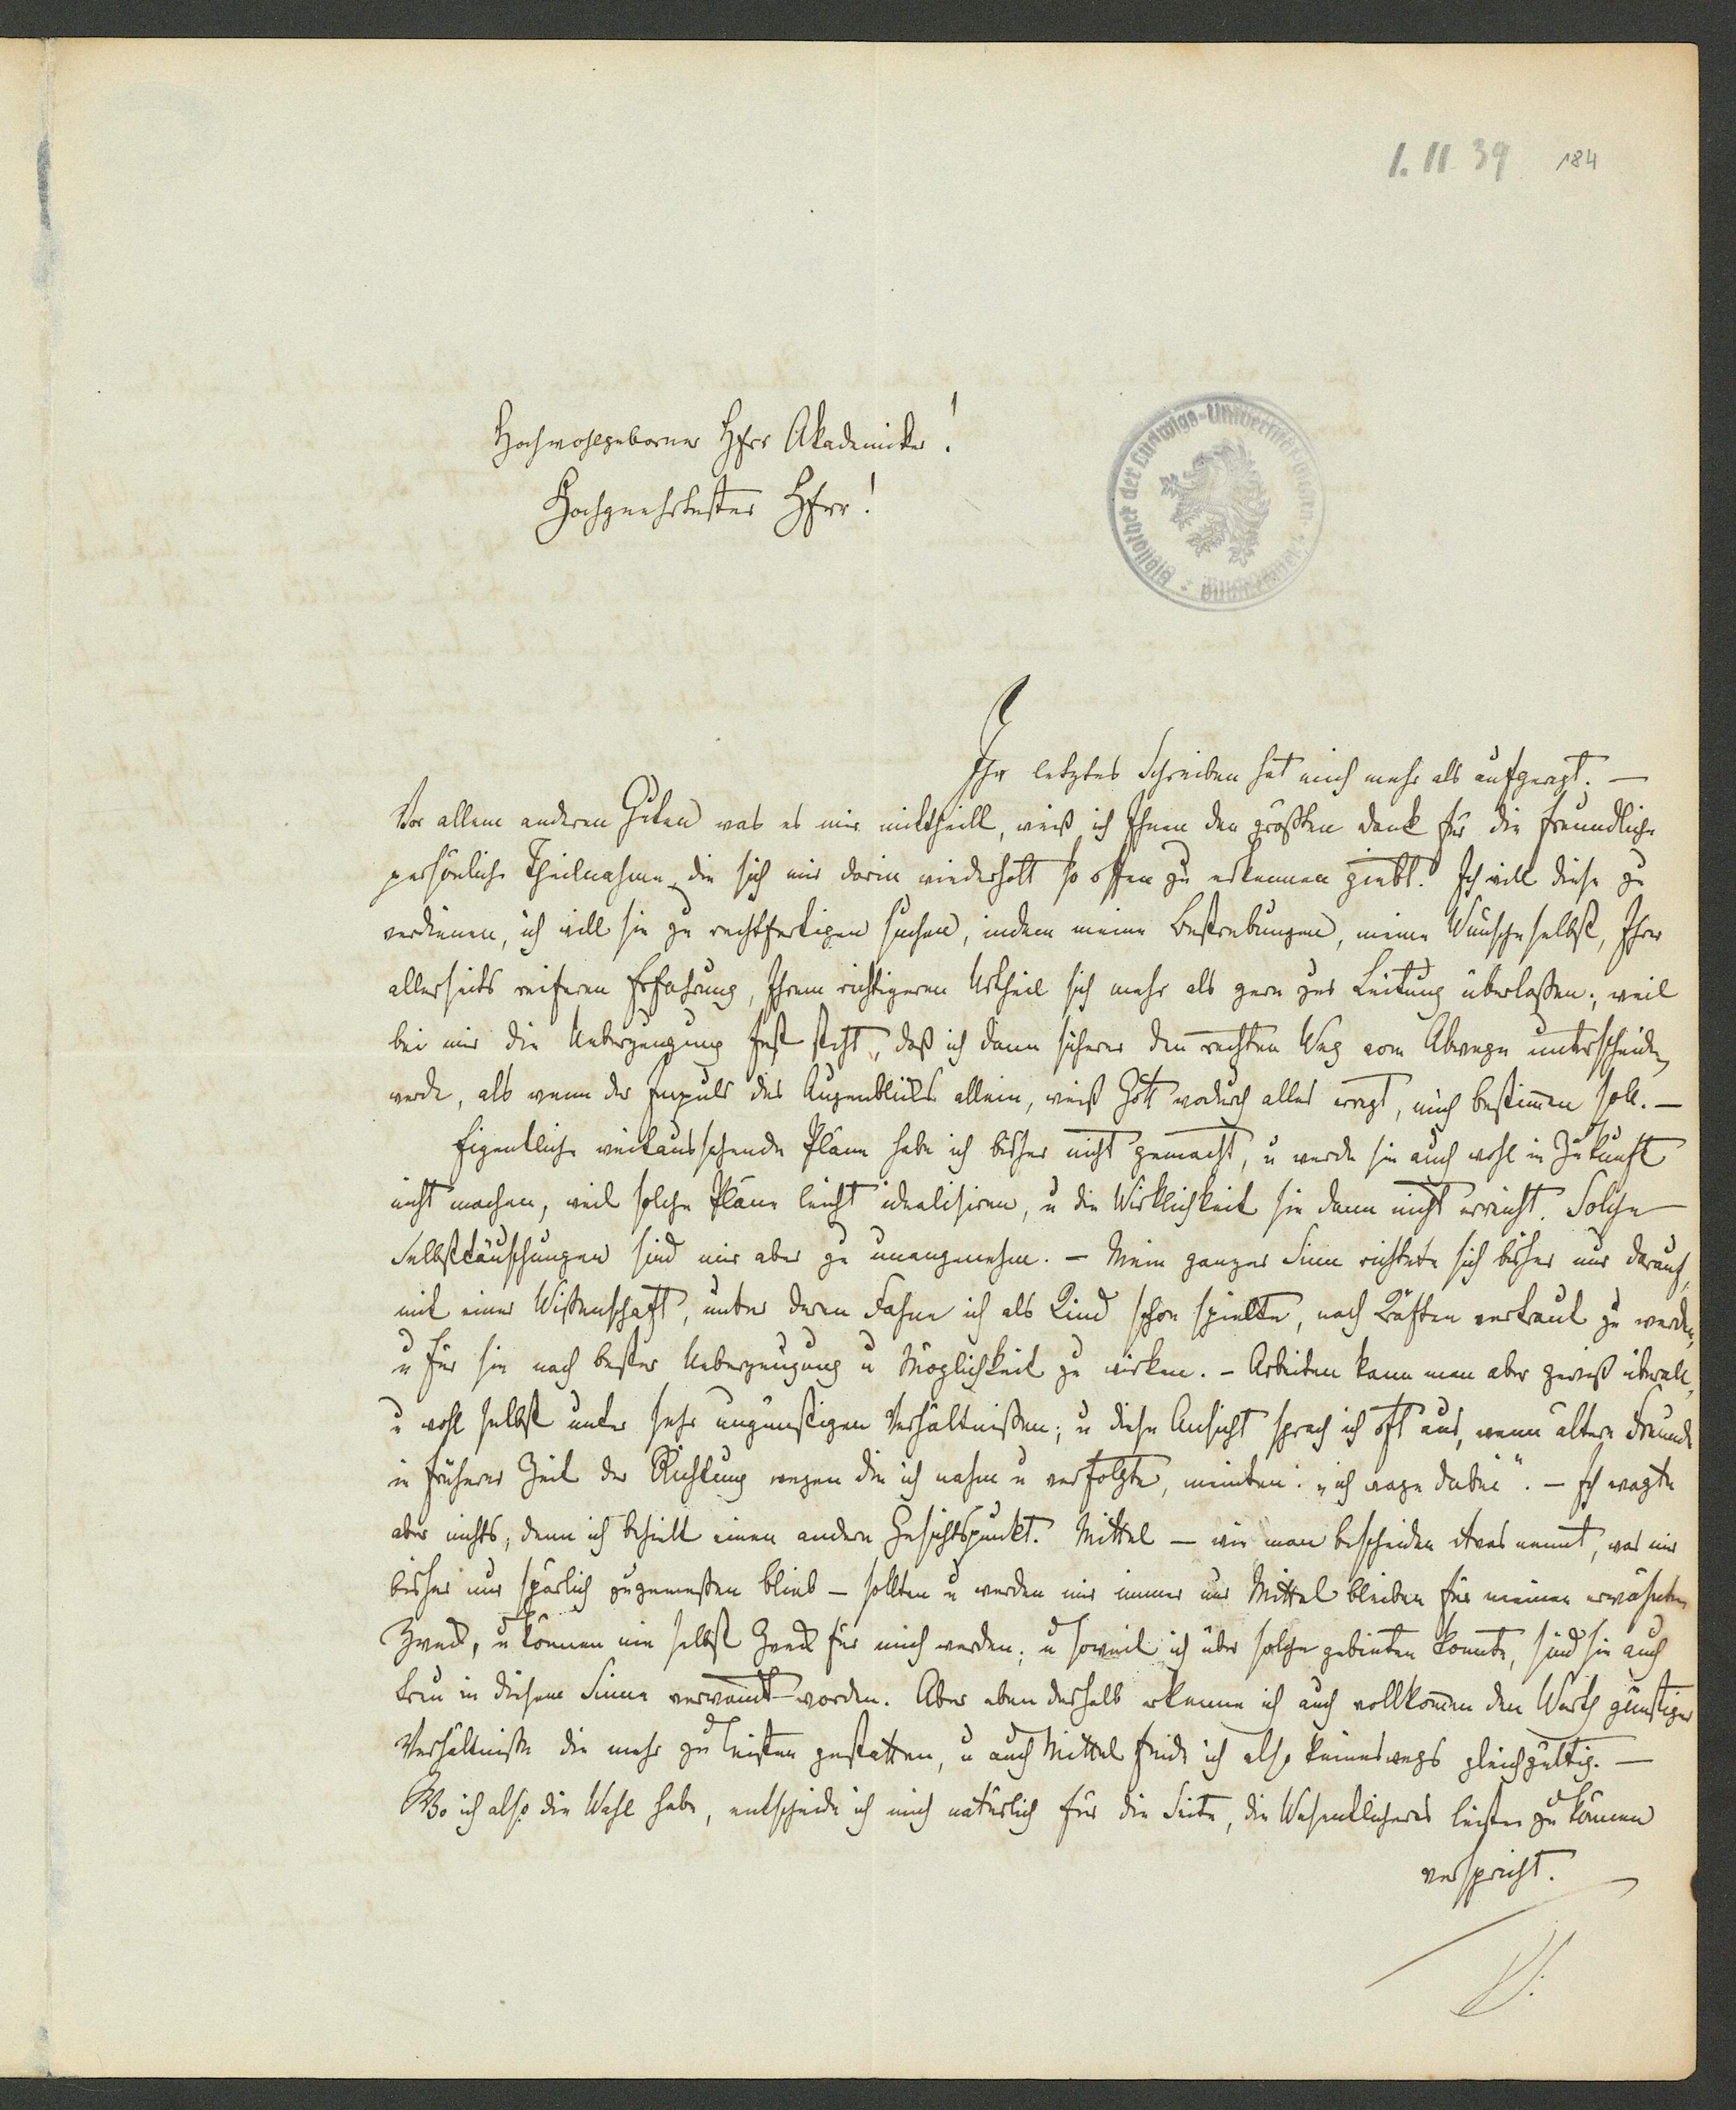 1. 11 39 184
Hochwohlgeborner Herr Akademiker!
Hochgeehrtester Herr!
Bibliothek der Ludwigs-Universität Giessen
Ihr letztes Schreiben hat mich mehr als aufgeregt. —
Vor allem anderen Guten was es mir mittheilt, weiß ich Ihnen den größten Dank für die freundliche
persönliche Theilnahme, die sich mir darin wiederholt so offen zu erkennen giebt. Ich will diese zu
verdienen, ich will sie zu rechtfertigen suchen, indem meine Bestrebungen, meine Wünsche selbst, Ihrer
allerseits reiferen Erfahrung, Ihrem richtigeren Urtheil sich mehr als gern zur Leitung überlaßen; weil
bei mir die Ueberzeugung fest steht, daß ich dann sicherer den rechten Weg vom Abwege unterscheiden
werde, als wenn der Impuls des Augenblicks allein, weiß Gott wodurch alles erregt, mich bestimen soll. —
Eigentliche weitaussehende Pläne habe ich bisher nicht gemacht, u werde sie auch wohl in Zukunft
nicht machen, weil solche Pläne leicht idealisiren, u die Wirklichkeit sie dann nicht erreicht. Solche
Selbsttäuschungen sind mir aber zu unangenehm. — Mein ganzer Sinn richtete sich bisher nur darauf,
mit einer Wißenschaft, unter deren Fahne ich als Kind schon spielte, nach Kräften vertraut zu werden,
u für sie nach bester Ueberzeugung u Möglichkeit zu wirken. — Arbeiten kann man aber gewiß überall,
u wohl selbst unter sehr ungünstigen Verhältnißen; u diese Ansicht sprach ich oft aus, wenn ältere Freunde
in früherer Zeit der Richtung wegen die ich nahm u verfolgte, meinten: „ich wage dabei“. — Ich wagte
aber nichts, denn ich behielt einen andern Gesichtspunkt. Mittel — wie man bescheiden etwas nennt, was mir
bisher nur spärlich zugemeßen blieb — sollten u werden mir immer nur Mittel bleiben für meinen erwähnten
Zweck, u können nie selbst Zweck für mich werden; u soweit ich über solche gebieten konnte, sind sie auch
treu in diesem Sinne verwandt worden. Aber eben deshalb erkenne ich auch vollkomen den Werth günstiger
Verhältniße die mehr zu leisten gestatten, u auch Mittel finde ich also keineswegs gleichgültig. —
Wo ich also die Wahl habe, entscheide ich mich natürlich für die Seite, die Wesentlicheres leisten zu können
verspricht.